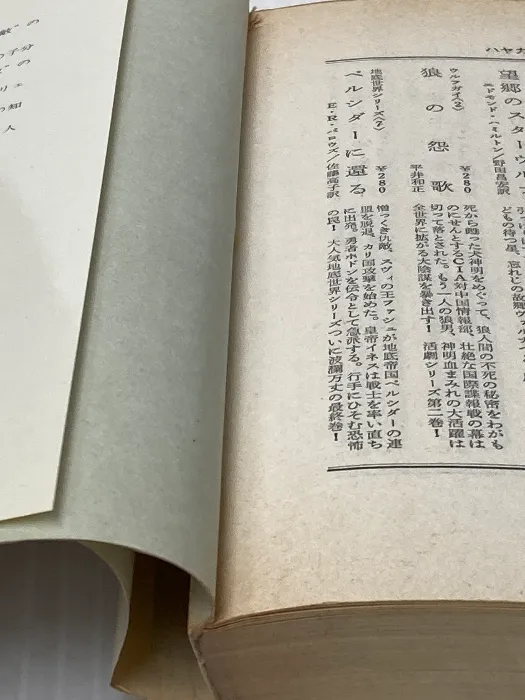 ハヤカ
望郷のスターウルフ
エドモンド・ハミルトン/野田昌宏訳
どもの待つ星、忘れじの故郷ヴァルナへ
ウルフガイ〈2〉
狼の怨歌
¥280
平井和正
死から甦った犬神明をめぐって、狼人間の不死の秘密をわがも
のにせんとするCIA対中国情報部、壮絶な国際諜報戦の幕は
切って落とされた。もう一人の狼男、神明血まみれの大活躍は
全世界に拡がる大陰謀を暴き出す! 活劇シリーズ第二巻!
地底世界シリーズ〈7〉
ペルシダーに還る
¥280
E・R・バロウズ/佐藤高子訳
憎っくき仇敵、スヴィの王ファシュが地底帝国ペルシダーの連
盟を脱退、カリ国攻撃を始めた。皇帝イネスは戦士を率い直ち
に出発。勇者ホドンを伝令として急派する。行手にひそむ恐怖
の罠! 大人気地底世界シリーズついに波瀾万丈の最終巻!
の子分
の
リェ
の知
人